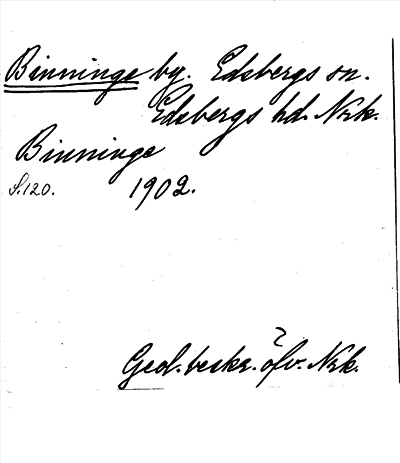 Binninge by. Edsbergs sn.
Edsbergs hd. Nrk.
Binninge
S. 120. 1902.
Geol. beskr. öfv. Nrk.